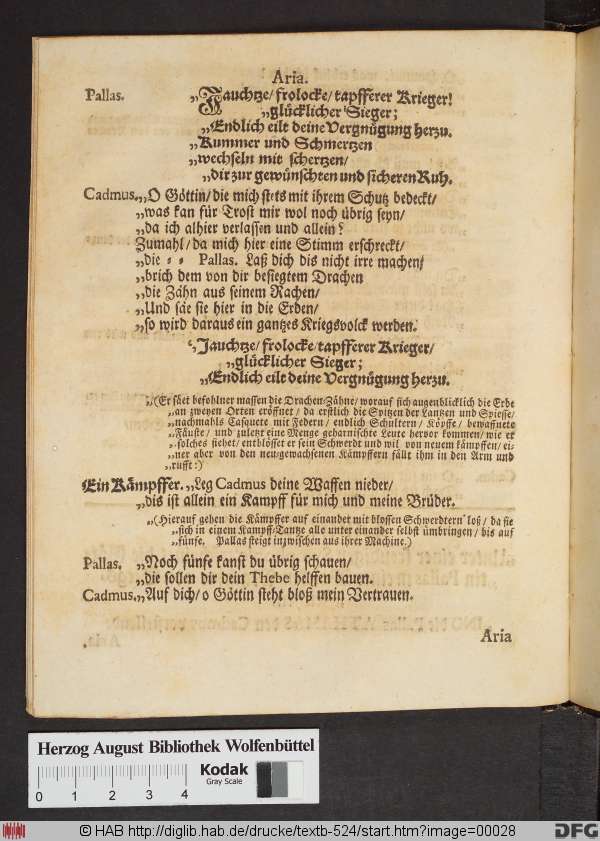 Aria.
Pallas. „Jauchtze/ frolocke/ tapfferer Krieger!
„glücklicher Sieger;
„Endlich eilt deine Vergnügung herzu.
„Kummer und Schmertzen
„wechseln mit schertzen/
„dir zur gewünschten und sicheren Ruh.
Cadmus. „O Göttin/ die mich stets mit ihrem Schutz bedeckt/
„was kan für Trost mir wol noch übrig seyn/
„da ich alhier verlassen und allein?
Zumahl/ da mich hier eine Stimm erschreckt/
„die ⸗ ⸗ Pallas. Laß dich dis nicht irre machen/
„brich dem von dir besiegtem Drachen
„die Zähn aus seinem Rachen/
„Und säe sie hier in die Erden/
„so wird daraus ein gantzes Kriegsvolck werden.
„Jauchtze/ frolocke/ tapfferer Krieger/
„glücklicher Sieger;
„Endlich eilt deine Vergnügung herzu.
„(Er säet befohlner massen die Drachen-Zähne/ worauf sich augenblicklich die Erde
„an zweyen Orten eröffnet/ da erstlich die Spitzen der Lantzen und Spiesse/
„nachmahls Casquete mit Federn/ endlich Schultern/ Köpffe/ bewaffnete
„Fäuste/ und zuletzt eine Menge geharnischte Leute hervor kommen/ wie er
„solches siehet/ entblösset er sein Schwerdt und wil von neuem kämpffen/ ei-
„ner aber von den neu-gewachsenen Kämpffern fällt ihm in den Arm und
„rufft:)
Ein Kämpffer. „Leg Cadmus deine Waffen nieder/
„dis ist allein ein Kampff für mich und meine Brüder.
„(Hierauf gehen die Kämpffer auf einander mit blossen Schwerdtern loß/ da sie
„sich in einem Kampff-Tantze alle unter einander selbst ümbringen/ bis auf
„fünfe. Pallas steigt inzwischen aus ihrer Machine.)
Pallas. „Noch fünfe kanst du übrig schauen/
„die sollen dir dein Thebe helffen bauen.
Cadmus. „Auf dich/ o Göttin steht bloß mein Vertrauen.
Aria
Herzog August Bibliothek Wolfenbüttel
Kodak
Gray Scale
0 1 2 3 4
© HAB http://diglib.hab.de/drucke/textb-524/start.htm?image=00028
DFG